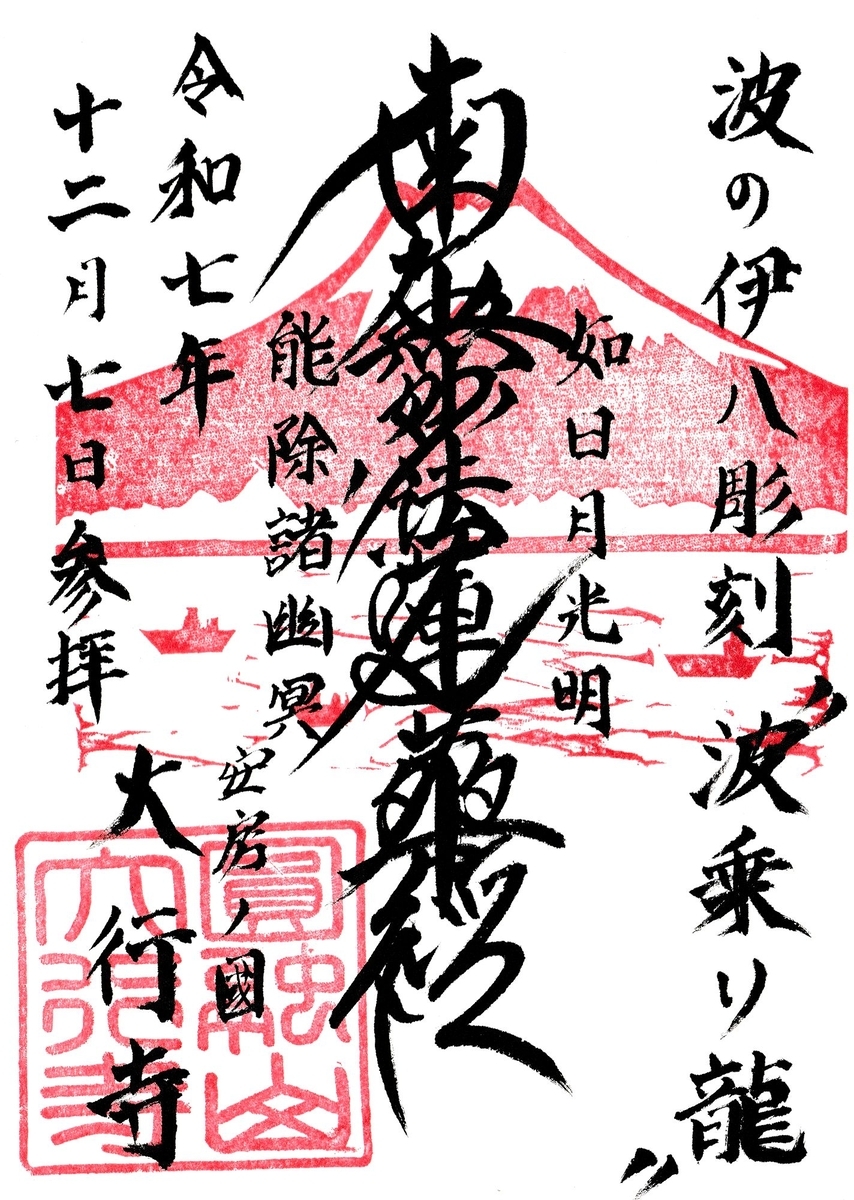 波の伊八彫刻〝波乗り龍〟
如日月光明
南無妙法蓮華経
能除諸幽冥
安房ノ國
大行寺
令和七年
十二月七日参拝
圓融山
大行寺